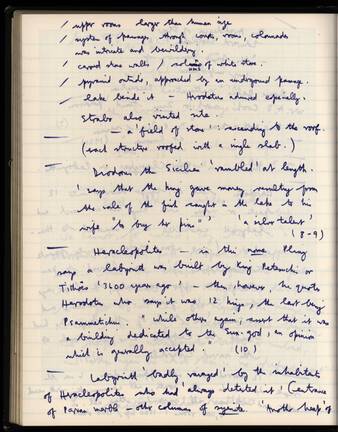 / upper rooms larger than human size
/ system of passages through courts, rooms, colonnades
was intricate and bewildering.
/ carved stone walls / columns of white stone.
/ pyramid outside, approached by an underground passage.
/ lake beside it - Herodotus admired especially.
Strabo also visited site.
— a 'field of stone': ascending to the roof.
(each structure roofed with a single slab.)
— Diodorus the Sicilian 'rambled' at length.
'says that the king gave money resulting from
the sale of the fish caught in the lake to his
wife "to buy her pins"' 'a silver talent'
(8-9)
— Heracleopolites - in this nome Pliny
says a labyrinth was built by King Petesuchi or
Tithoes '3600 years ago' - tho, however, he quotes
Herodotus who says it was 12 kings, the last being
Psammetichus. "while others again, assert that it was
a building dedicated to the Sun-god, an opinion
which is generally accepted." (10)
— Labyrinth badly ravaged by the inhabitants
of Heracleopolites who had 'always detested it' (entrance
of Parian marble - other columns of syenite. 'Another heap' of